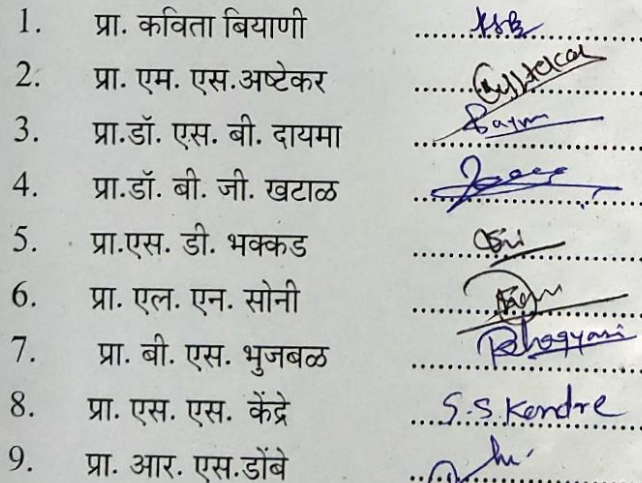 1. प्रा. कविता बियाणी ....................
2. प्रा. एम. एस.अष्टेकर ....................
3. प्रा.डॉ. एस. बी. दायमा ....................
4. प्रा.डॉ. बी. जी. खटाळ ....................
5. प्रा.एस. डी. भक्कड ....................
6. प्रा. एल. एन. सोनी ....................
7. प्रा. बी. एस. भुजबळ ....................
8. प्रा. एस. एस. केंद्रे S.S.Kendre
9. प्रा. आर. एस.डोंबे ....................